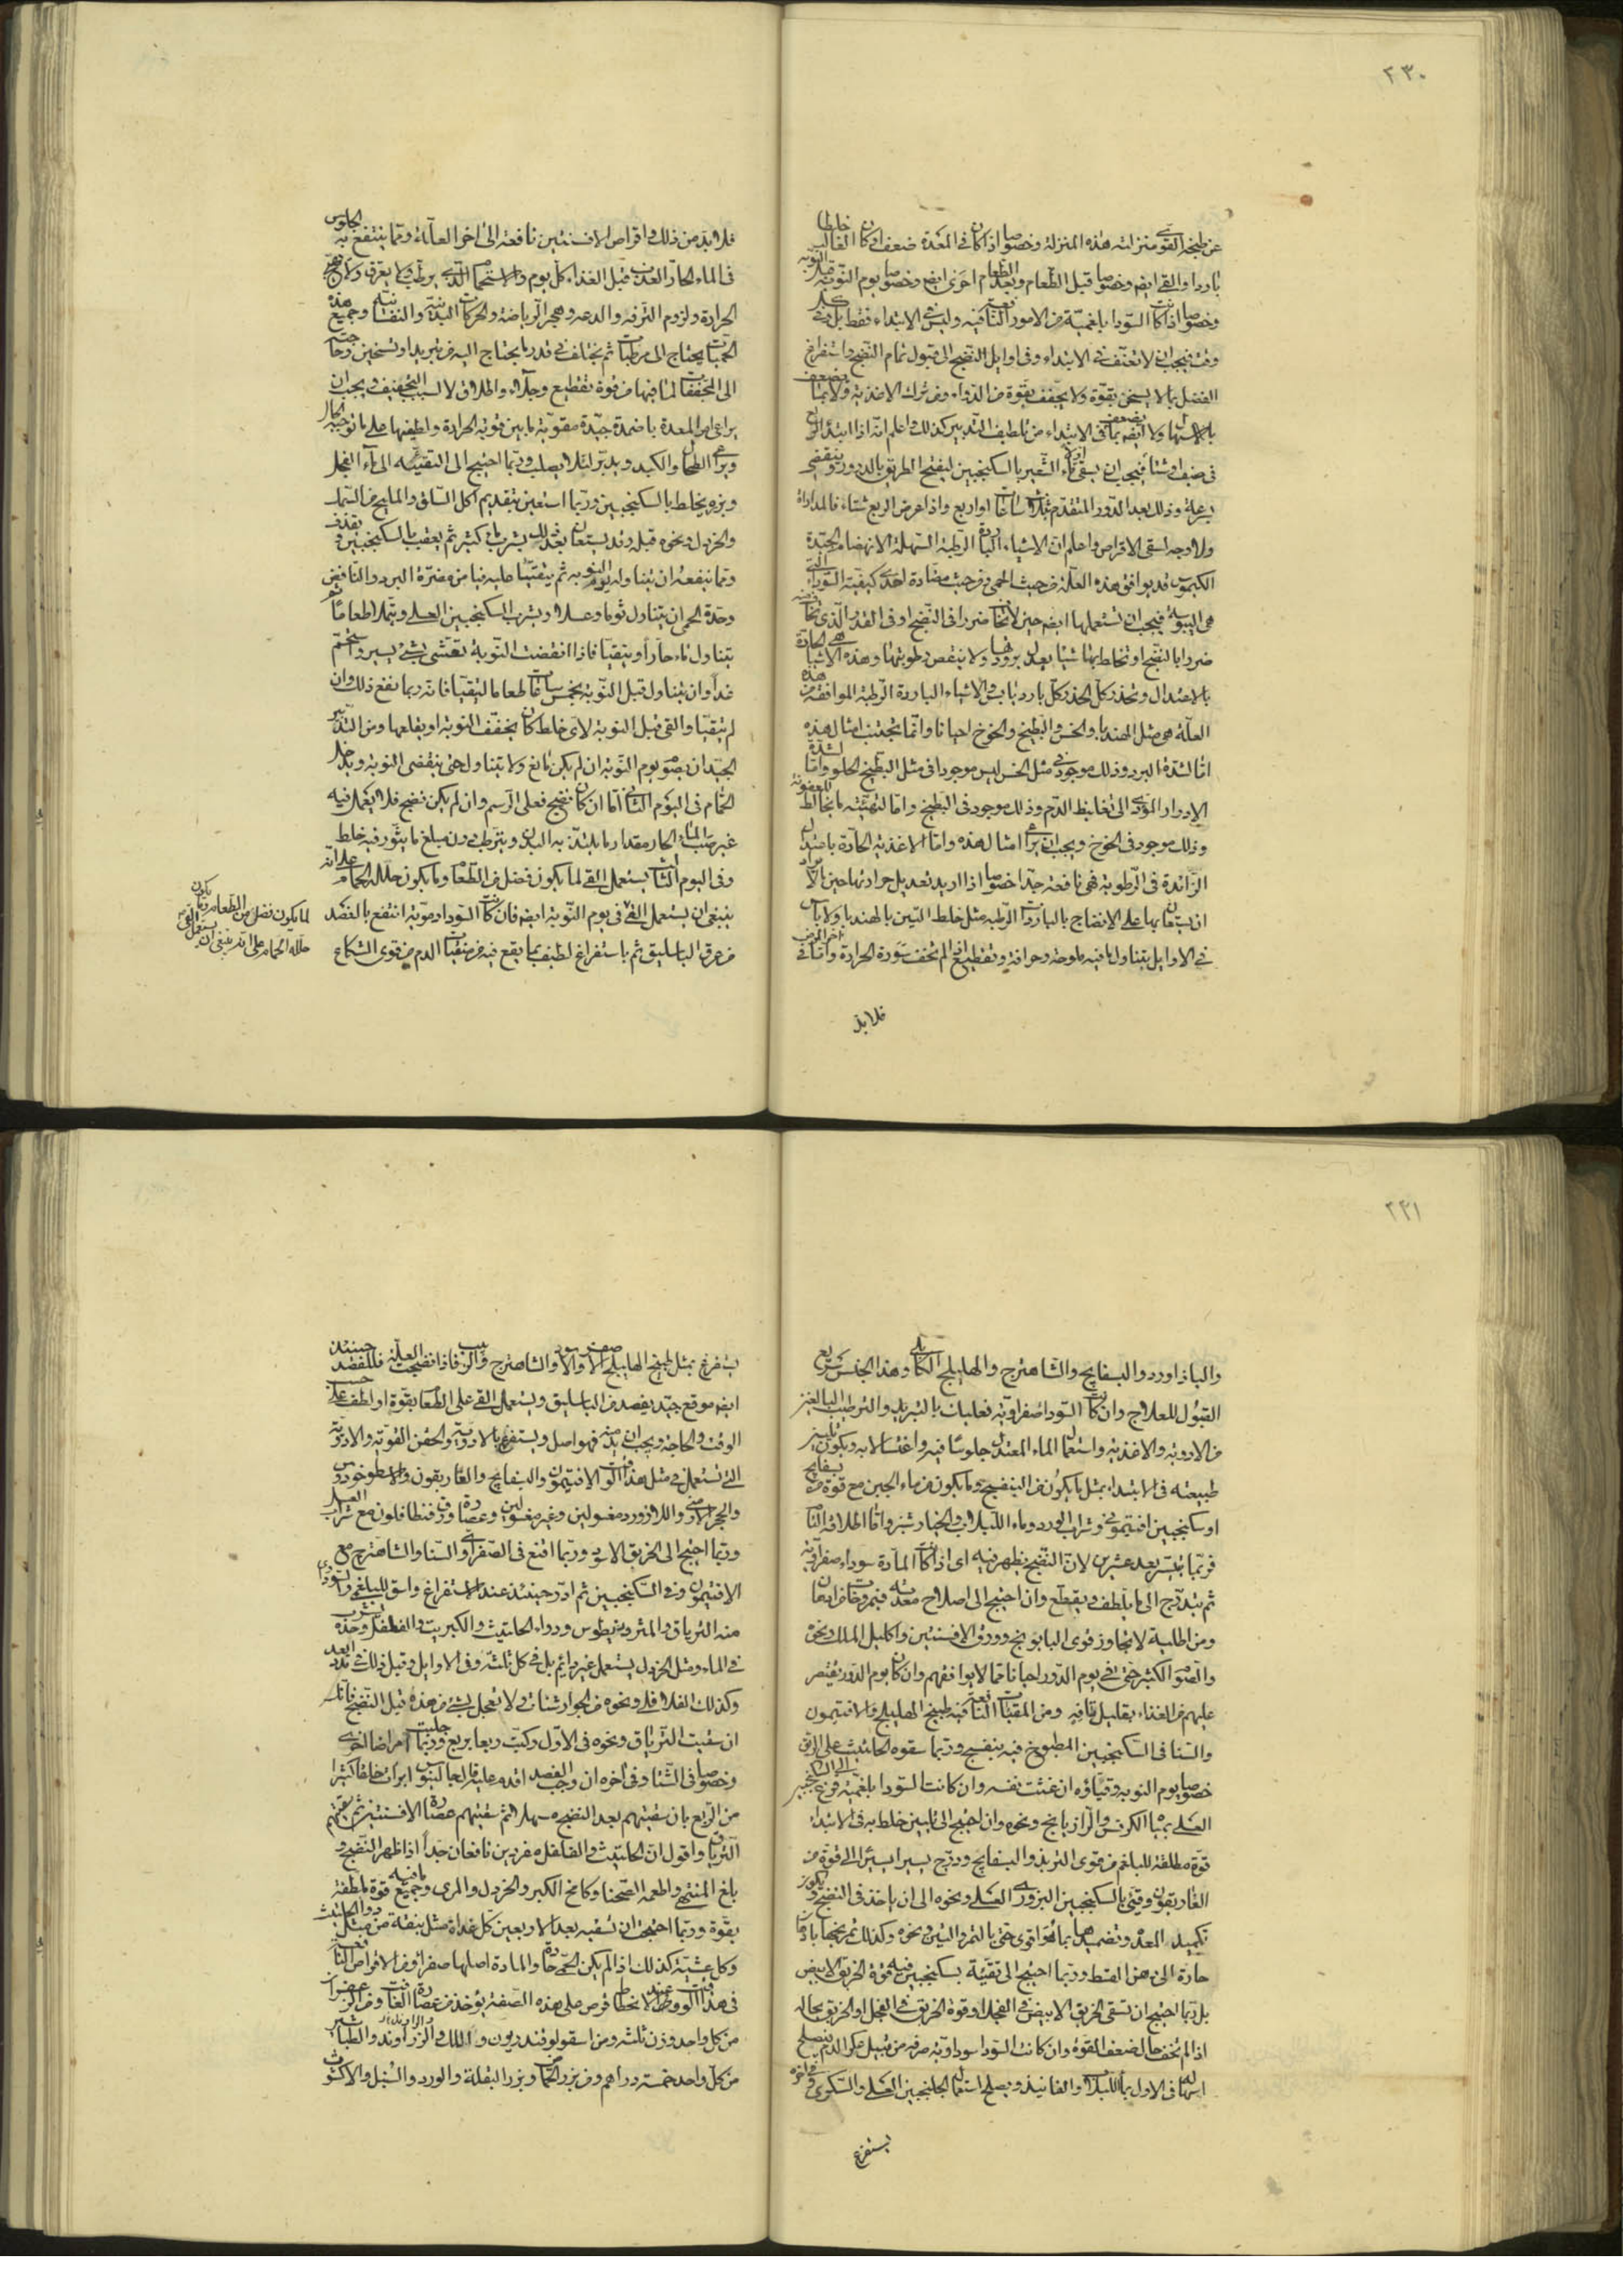 ٢٣٠
عن طبخه القوى منزلته هذه المنزلة وخصوصا اذا كان فى المعدة ضعف او كان الغالب خلطا
باردا والقى ايضا وخصوصا قبل الطعام وبعد الطعام اخرى ايضا وخصوصا يوم النوبة قبل النوبة
وخصوصا اذا كانت السوداء بلغمية من الامور النافعة فيه وليس فى الابتداء فقط بل فى كل
وقت فيجب ان لا تعنف فى الابتداء وفى اوايل النضج الى قبول تمام النضج واستفراغ
الفضل بما لا يسخن بقوة ولا يجفف بقوة من الدواء ومن ترك الاغذية ولا بما يضعف
بالاسهال ولا ايضا بما يضعف فى الابتداء من تلطيف التدبير كذلك واعلم انه اذا ابتدا الربع
فى صيف او شتاء فيجب ان يسقى ماء الشعير بالسكنجبين ليفتح الطريق بالدرور وينقضى
بسرعة وذلك بعد الدور المتقدم بثلاث ساعات او اربع واذا عرض الربع شتاء فالمداراة
ولا وجه لسقى الاقراص واعلم ان الاشياء الباردة الرطبة السهلة الانهضام الجيدة
الكيموس قد يوافق هذه العلة من حيث الحمى ومن حيث مضادة احدى كيفيتى السوداء التى
هى اليبوسة فيجب ان تستعملها ايضا حين لا تخاف ضررا فى النضج او فى القدر الذى تخاف منه
ضررا بالنضج او تخلط بها شيئا يعدل برودتها ولا ينقص رطوبتها وهذه الاشياء هى الحارة
بالاعتدال وتحذر كل الحذر كل بارد يابس والاشياء الباردة الرطبة الموافقة من هذه
العلة هى مثل الهندباء والخس والبطيخ والخوخ احيانا وانما يجتنب امثال هذه
اما لشدة البرد وذلك موجود فى مثل الخس ليس موجودا فى مثل البطيخ الحلو واما لشدة
الادرار المؤدى الى تغليظ الدم وذلك موجود فى البطيخ واما لتهيئته ما يخالط للعفونة
وذلك موجود فى الخوخ ويجب ان يراعى امثال هذه واما الاغذية الحارة باعتدال
الزائدة فى الرطوبة فهى نافعة جدا خصوصا اذا اريد تعديل حرارتها حين يراد
ان يستعان بها على الانضاج بالباردات الرطبة مثل خلط التين بالهندبا ولا باس
فى الاوايل بتناول ما فيه ملوحة وحرافة وتقطيع ما لم تخف سورة الحرارة واما فى اخر المرض
فلا بد
فلا بد من ذلك واقراص الافسنتين نافعة الى اخر العلة ومما ينتفع به الجلوس
فى الماء الحار العذب قبل الغذاء كل يوم والاستحمام الذى يرطب ولا يعرق ولا يهيج
الحرارة ولزوم الترفه والدعه وهجر الرياضة والحركات البدنية والنفسانية وجميع هذه
الحميات يحتاج الى مرطبات ثم يختلف فى قدر ما يحتاج اليه من تبريد او تسخين وحاجته
الى المجففات لما فيها من قوة تقطيع وجلاء واطلاق لا لسبب التجفيف ويجب ان
يراعى امر المعدة باضمدة جيدة مقوية ما بين قوية الحرارة ولطيفها على ما توجبه الحال
ويراعى الطحال والكبد ويدبر لئلا يصلب وربما احتيج الى التقيئه الى ماء الفجل
وبزره يخلط بالسكنجبين وربما استعين بتقديم اكل السلق والمليح من السمك
والخردل ونحوه قبله وقد يستعان بعد ذلك بشرب ماء كثير ثم يعقب بالسكنجبين ويقذف
ومما ينفعه ان يتناوله يوم النوبه ثم يتقيا عليه نيا من مضرة البرد والنافض
وحدة الحمى ان يتناول ثوما وعسلا ويشرب السكنجبين العسلى ويتملا طعاما ثم
يتناول ماء حارا ويتقيا فاذا انقضت النوبة تعشى بشئ يسير واستحم
غدا وان يتناول قبل النوبة بخمس ساعات طعاما ليتقيا فانه ربما نفع ذلك وان
لم يتقيا والقى قبل النوبة لاى خلط كان يخفف النوبة او يقلعها ومن التدبير
الجيد ان يصوم يوم النوبة ان لم يكن مانع ولا يتناول حتى ينقضى النوبة ويدخل
الحمام فى اليوم الثانى اما ان كان نضيج فعلى الرسم وان لم يكن نضيج فلا يعمل فيه
غير صب الماء الحار مقدار ما يلتذ به البدن ويترطب دون مبلغ ما يثور فيه خلط
وفى اليوم الثالث يستعمل القى لما يكون فضل من الطعام وما يكون حلله الحمام على انه
ينبغى ان يستعمل القى فى يوم النوبة ايضا فان كانت السوداء دموية انتفع بالفصد
من عرق الباسليق ثم باستفراغ لطيف بما يقع فيه من منقيات الدم من قوى الشكاع
لما يكون فضل من الطعام وما يكون
حلله الحمام على انه ينبغى ان يستعمل القى
٢٣١
والباذاورد والبسفايج والشاهترج والهليلج الكابلى وهذا الجنس سريع
القبول للعلاج وان كانت السوداء صفراوية فعليك بالتبريد والترطيب البالغين
من الادوية والاغذية واستعمال الماء المعتدل جلوسا فيه واغتسالا به ويكون تليين
طبيعته فى الابتداء بمثل ما يكون من البنفسج وما يكون من ماء الجبن مع قوة من بسفايج
او سكنجبين افتيمونى وشراب الورد وماء اللبلاب والخيارشنبر واما اطلاقه التام
فربما تيسر بعد عشرين لان النضج يظهر فيه اى اذا كانت المادة سوداء صفراوية
ثم يتدرج الى ما يلطف ويقطع وان احتيج الى اصلاح معدته فبمروخات من ادهان
ومن اطلية لا تجاوز قوى البابونج وورق الافسنتين واكليل الملك ونحوه
والصوم الكثير حتى فى يوم الدور احيانا مما لا يوافقهم وان كان يوم الدور يقتصر
عليهم من الغذاء بقليل تافه ومن المقيات النافعة فيه طبيخ الهليلج والافتيمون
والسنا فى السكنجبين المطبوخ فيه بنفسج وربما سقوه الحلتيت على الريق
خصوصا يوم النوبة وقياوه ان غثت نفسه وان كانت السوداء بلغمية فزع الى السكنجبين
العسلى بماء الكرفس والرازيانج ونحوه وان احتيج الى تليين خلط به فى الابتداء
قوة مطلقة للبلغم من قوى التربذ والبسفايج ودرج يسيرا يسيرا الى قوة من
الغاريقون وقيئ بالسكنجبين البزورى العسلى ونحوه الى ان ياخذ فى النضج ويكون
تكميد المعدة وتضميدها بما هو اقوى حتى بالتمر والتين ونحوه وكذلك تمريخها بادهان
حارة الى دهن القسط وربما احتيج الى تقيئة بسكنجبين فيه قوة الخربق الابيض
بل ربما احتيج ان تسقى الخربق الابيض فى الفجل او قوة الخربق فى الفجل او الخربق بحاله
اذا لم تخف حال ضعف القوة وان كانت السوداء سوداوية صرفه من قبيل عكر الدم فيصلح
اسهاله فى الاول بماء اللبلاب والفانيذ ويصلح استعمال الجلنجبين العسلى والسكرى واخره
يستفرغ
يستفرغ بمثل طبيخ الهليلج الاصفر والاسود والشاهترج والزبيب فاذا نضجت العلة فللفصد حينئذ
ايضا موقع جيد يفصد من الباسليق ويستعمل القى على الطعام بقوة او لطف على حسب
الوقت والحاجة ويجب ان يدمنه فهو اصل ويستفرغ بالادوية والحقن القوية والادوية
التى تستعمل فى مثل هذا الوقت الافتيمون والبسفايج والغاريقون والاسطوخودوس
والحجر الارمنى واللازورد مغسولين وغير مغسولين وعصارة ورق قنطافلون مع شراب العسل
وربما احتيج الى الخربق الاسود وربما اقنع فى الصفراوى السنا والشاهترج مع
الافتيمون وفى السكنجبين ثم ادر حينئذ عند الاستفراغ واسق للبلغمى والسوداوى
منه الترياق والمثروديطوس ودواء الحلتيت والكبريت والفلفل وحده يشرب
فى الماء ومثل الخردل يستعمل غير دايم بل فى كل ثلثة وفى الاوايل وقبل ذلك فى مدد ابعد
وكذلك الفلافلى ونحوه من الجوارشنات ولا تعجل بشئ من هذه قبل النضج فانك
ان سقيت الترياق ونحوه فى الاول ركبت ربعا بربع وربما جلبت امراضا اخرى
وخصوصا فى الشتاء وفى اخره ان وجب الفصد اقدم عليه
من الربع بان سقيتهم بعد النضج مسهلا ثم سقيتهم عصارة الافسنتين ثم سقيتهم
الترياق واقول ان الحلتيت والفلفل مفردين نافعان جدا اذا ظهر النضج و
بلغ المنتهى واطعمه الصحنا وكامخ الكبر والخردل والمرى وجميع ما فيه قوة ملطفة
بقوة وربما احتجت ان تسقيه بعد الاربعين كل غداة مثل بندقة من دواء الحلتيت
وكل عشية كذلك اذا لم يكن الحمى حادة والمادة اصلها صفراء ومن الاقراص النافعة
فى هذا الوقت وعند الانحطاط قرص على هذه الصفة يؤخذ من عصارة الغافت ومن الزعفران
من كل واحد وزن ثلثه ومن اسقولوقندريون واللك والزراوند والطباشير
من كل واحد خمسة دراهم ومن بزر الحماض وبزر البقلة والورد والسنبل والاكشوث